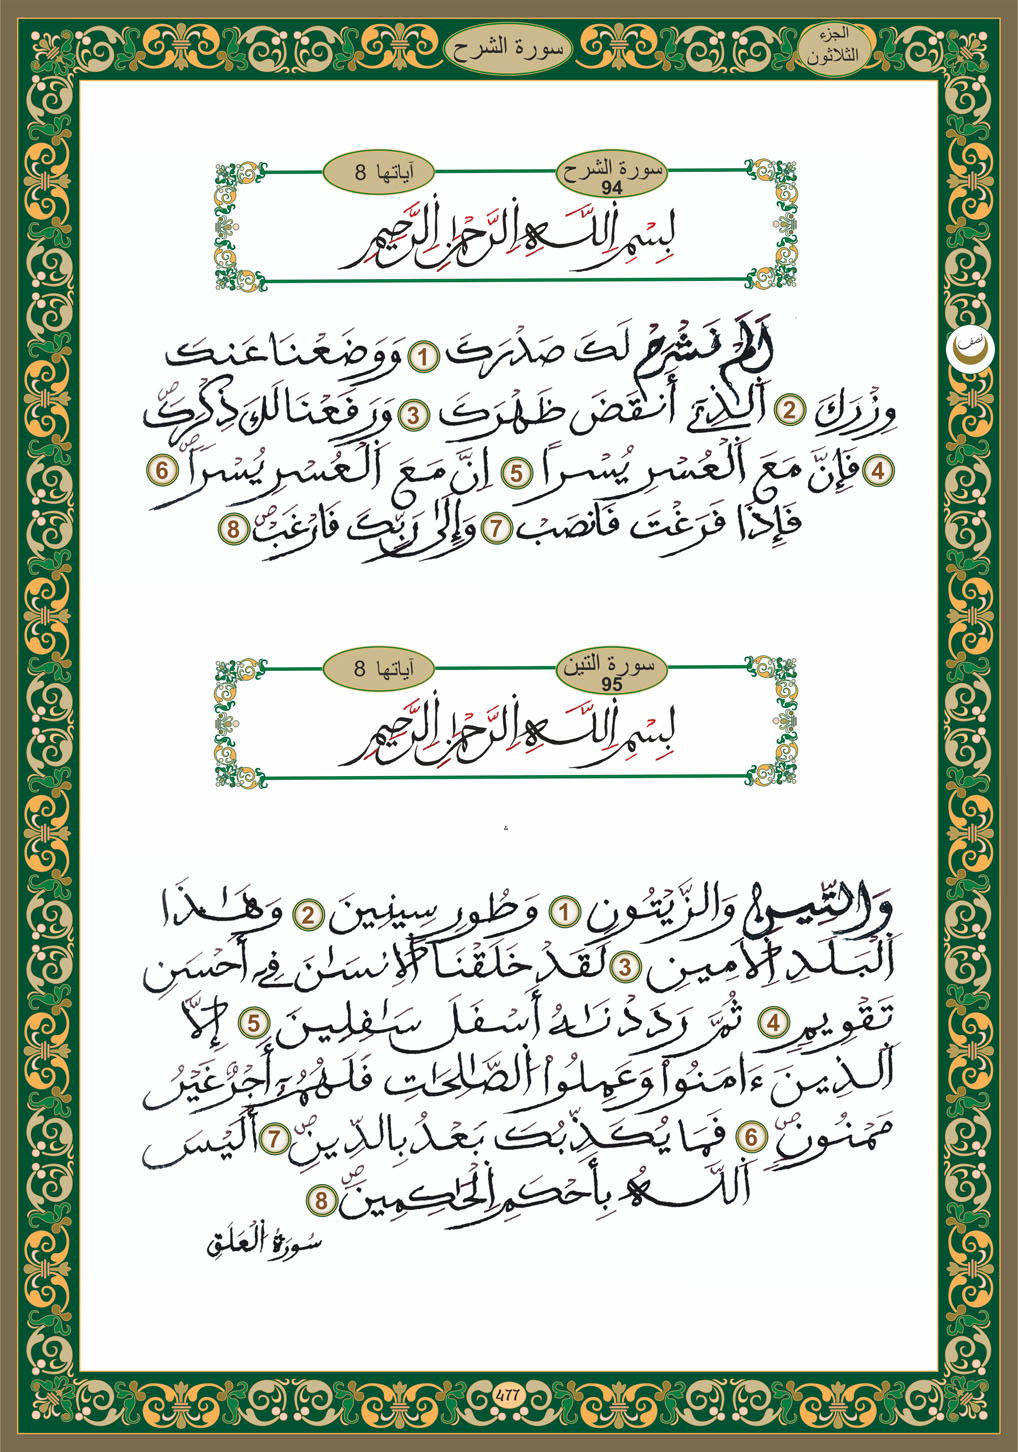 الجزء
الثلاثون
سورة الشرح
سورة الشرح
94
آياتها 8
بِسْمِ اِ۬للَّهِ اِ۬لرَّحْمَٰنِ اِ۬لرَّحِيمِ
نصف
أَلَمْ نَشْرَحْ لَكَ صَدْرَكَ 1 وَوَضَعْنَا عَنكَ
وِزْرَكَ 2 اَ۬لذِےٓ أَنقَضَ ظَهْرَكَ 3 وَرَفَعْنَا لَكَ ذِكْرَكَ صٓ
4 فَإِنَّ مَعَ اَ۬لْعُسْرِ يُسْراً 5 اِنَّ مَعَ اَ۬لْعُسْرِ يُسْراً صٓ 6
فَإِذَا فَرَغْتَ فَانصَبْ 7 وَإِلَىٰ رَبِّكَ فَارْغَبْ صٓ 8
سورة التين
95
آياتها 8
بِسْمِ اِ۬للَّهِ اِ۬لرَّحْمَٰنِ اِ۬لرَّحِيمِ
وَالتِّينِ وَالزَّيْتُونِ 1 وَطُورِ سِينِينَ 2 وَهَٰذَا
اَ۬لْبَلَدِ اِ۬لَامِينِ 3 لَقَدْ خَلَقْنَا اَ۬لِانسَٰنَ فِےٓ أَحْسَنِ
تَقْوِيمٍ 4 ثُمَّ رَدَدْنَٰهُ أَسْفَلَ سَٰفِلِينَ 5 إِلَّا
اَ۬لذِينَ ءَامَنُوا وَعَمِلُوا اُ۬لصَّٰلِحَٰتِ فَلَهُمُۥٓ أَجْرٌ غَيْرُ
مَمْنُونٍ صٓ 6 فَمَا يُكَذِّبُكَ بَعْدُ بِالدِّينِ صٓ 7 أَلَيْسَ
اَ۬للَّهُ بِأَحْكَمِ اِ۬لْحَٰكِمِينَ صٓ 8
سُورَةُ اُ۬لْعَلَقِ
477